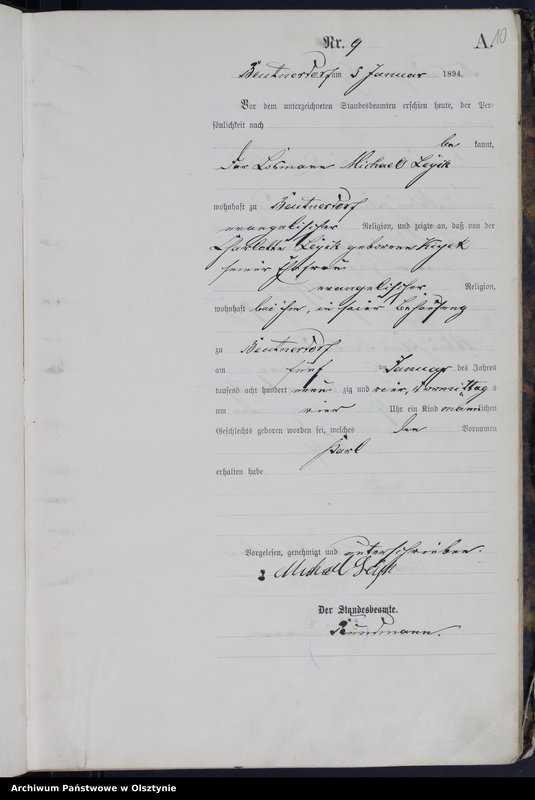 Nr. 9
A. 10
Beutnerdorf am 5 Januar 1894.
Vor dem unterzeichneten Standesbeamten erschien heute, der Per-
sönlichkeit nach
be kannt,
der Losmann Michael Leyk
wohnhaft zu Beutnerdorf
evangelischer Religion, und zeigte an, daß von der
Charlotte Leyk geborenen
seiner Ehefrau
evangelischer Religion,
wohnhaft bei ihm, in seiner Behausung
zu Beutnerdorf
am fünf ten Januar des Jahres
tausend acht hundert neun zig und vier, Vormittag s
um vier Uhr ein Kind männlichen
Geschlechts geboren worden sei, welches den Vornamen
Karl
erhalten habe
Vorgelesen, genehmigt und unterschrieben.
Michael Leyk
Der Standesbeamte.
Archiwum Państwowe w Olsztynie